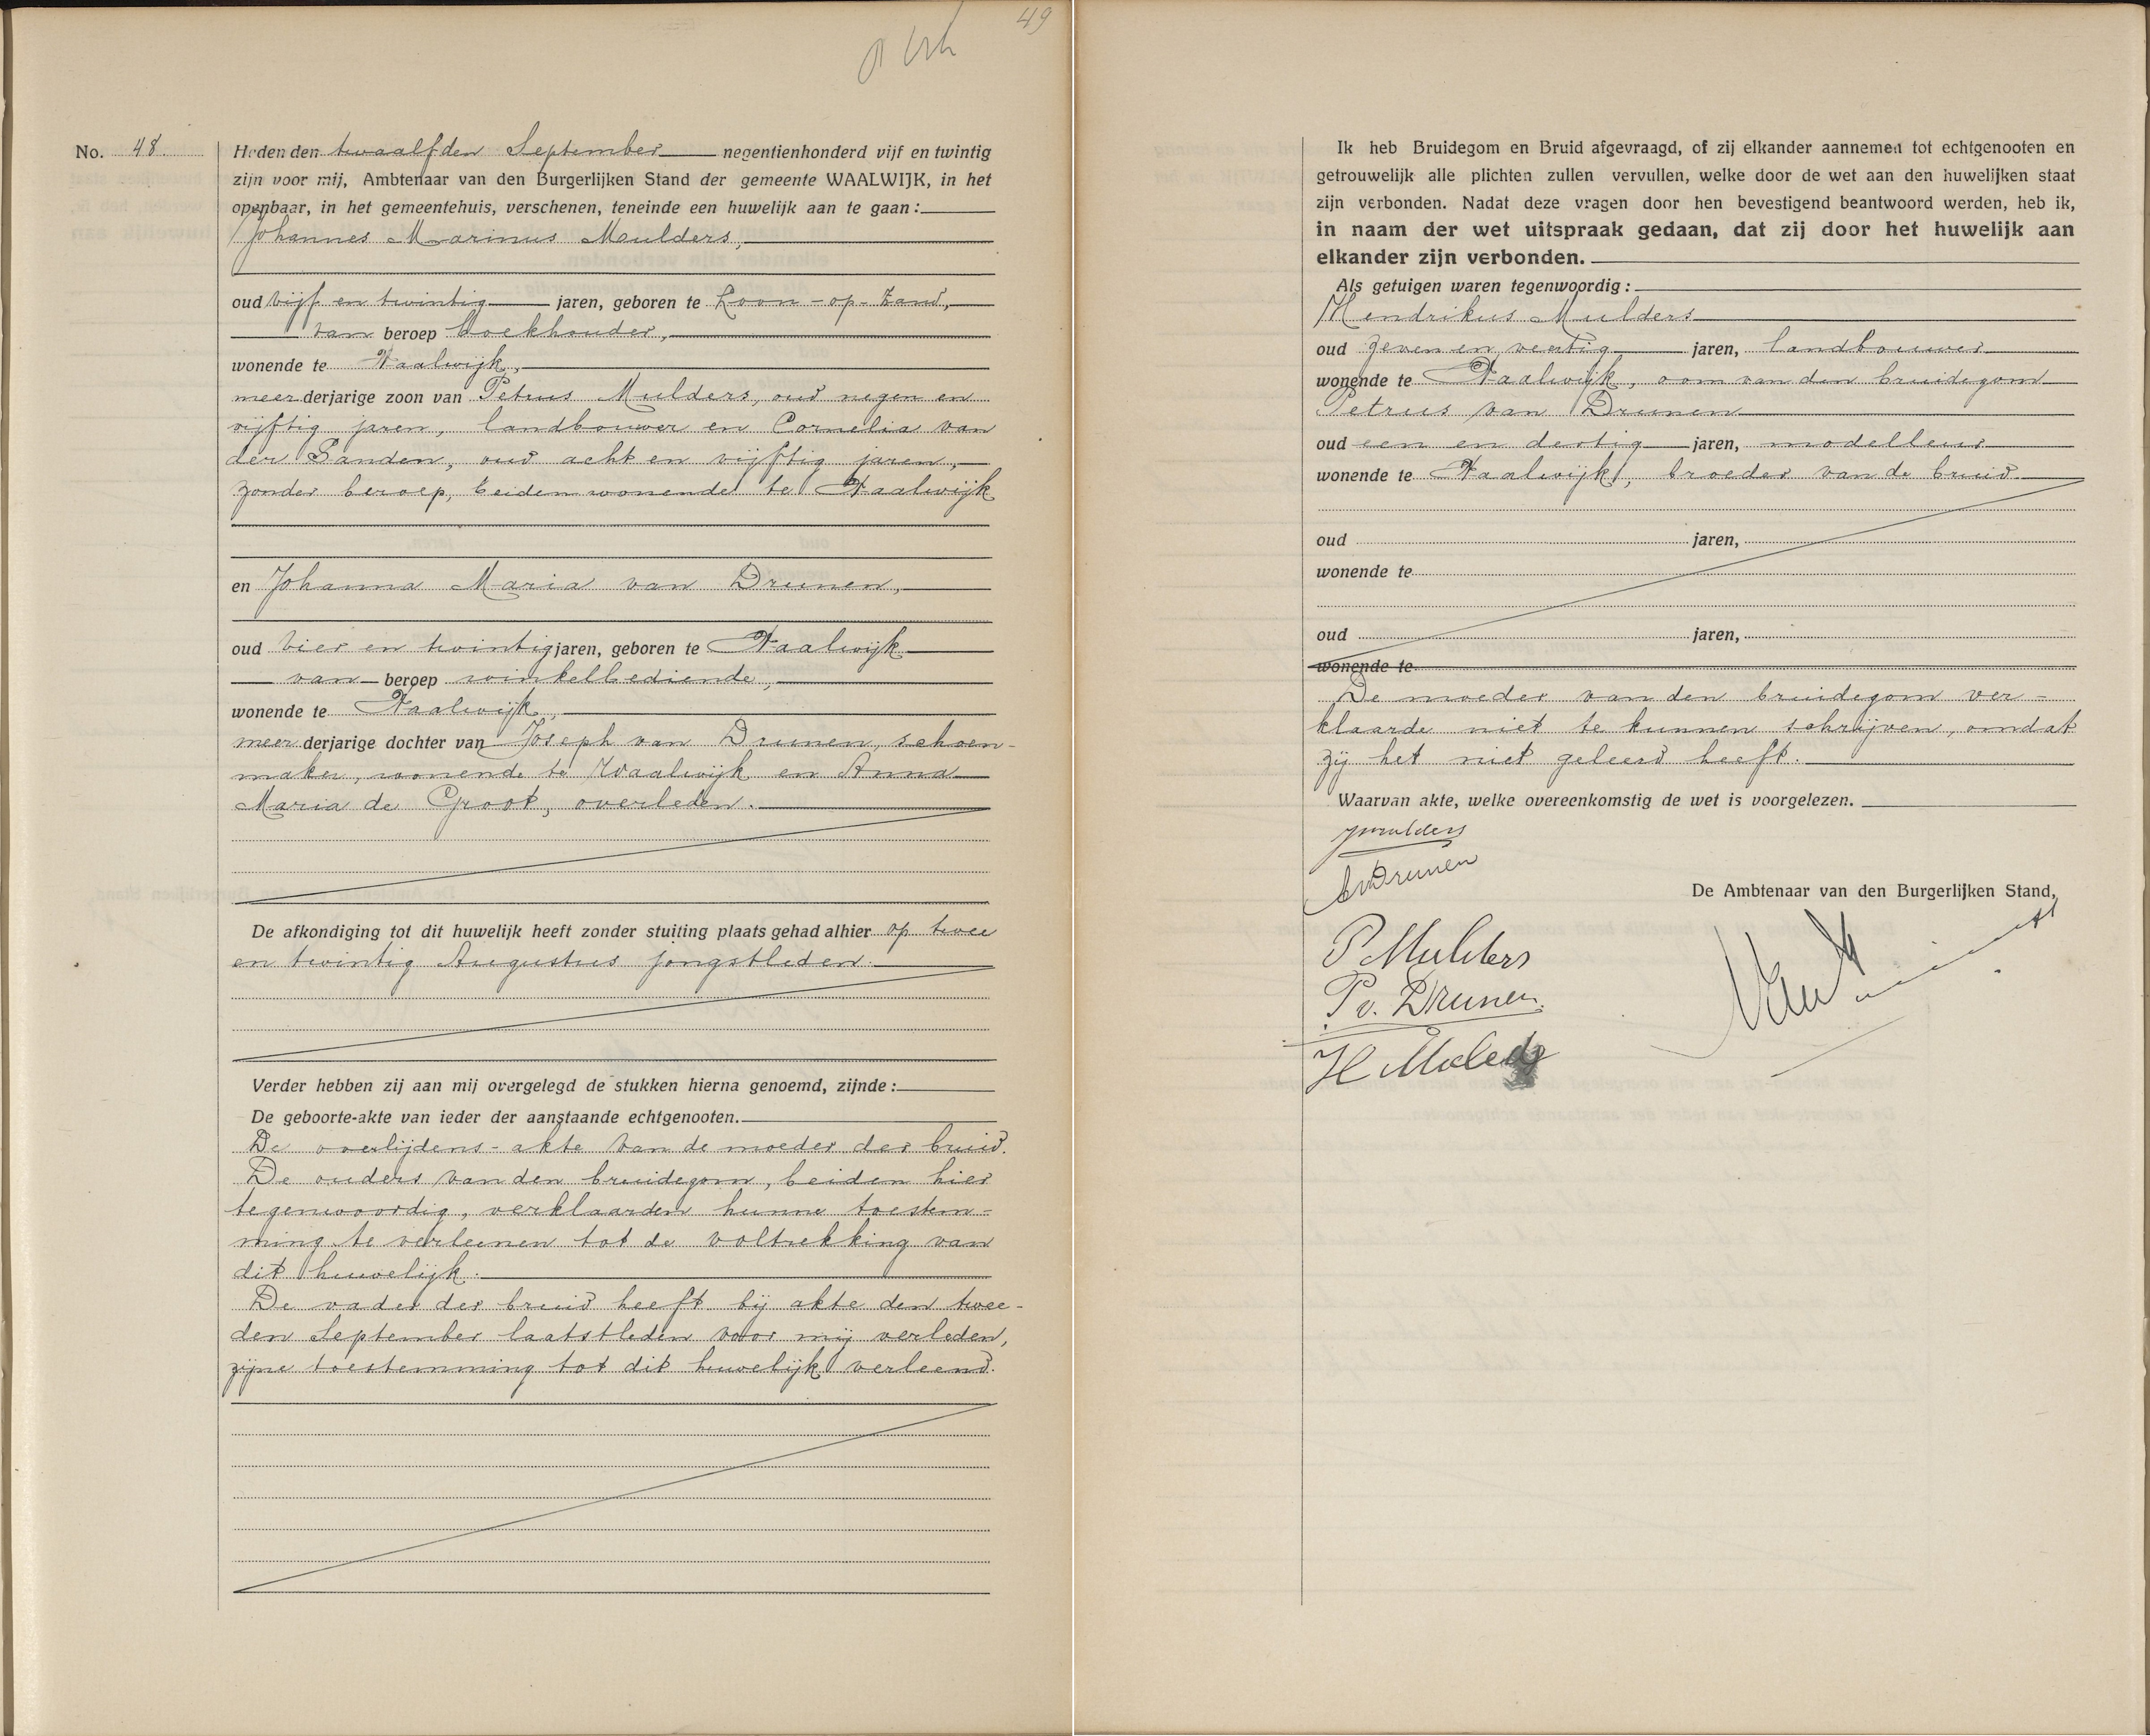 49
No. 48.
Heden den twaalfden September negentienhonderd vijf en twintig
zijn voor mij, Ambtenaar van den Burgerlijken Stand der gemeente WAALWIJK, in het
openbaar, in het gemeentehuis, verschenen, teneinde een huwelijk aan te gaan:
Johannes Marinus Mulders,
oud vijf en twintig jaren, geboren te Loon-op-Zand,
van beroep boekhouder,
wonende te Waalwijk,
meerderjarige zoon van Petrus Mulders, oud negen en
vijftig jaren, landbouwer en Cornelia van
der Sanden, oud acht en vijftig jaren,
zonder beroep, beiden wonende te Waalwijk
en Johanna Maria van Drunen,
oud vier en twintig jaren, geboren te Waalwijk
van beroep winkelbediende,
wonende te Waalwijk,
meerderjarige dochter van Joseph van Drunen, schoen-
maker, wonende te Waalwijk en Anna
Maria de Groot, overleden.
De afkondiging tot dit huwelijk heeft zonder stuiting plaats gehad alhier op twee
en twintig Augustus jongstleden.
Verder hebben zij aan mij overgelegd de stukken hierna genoemd, zijnde:
De geboorte-akte van ieder der aanstaande echtgenooten.
De overlijdens-akte van de moeder der bruid.
De ouders van den bruidegom, beiden hier
tegenwoordig, verklaarden hunne toestem-
ming te verleenen tot de voltrekking van
dit huwelijk.
De vader der bruid heeft bij akte den twee-
den September laatstleden voor mij verleden,
zijne toestemming tot dit huwelijk verleend.
Ik heb Bruidegom en Bruid afgevraagd, of zij elkander aannemen tot echtgenooten en
getrouwelijk alle plichten zullen vervullen, welke door de wet aan den huwelijken staat
zijn verbonden. Nadat deze vragen door hen bevestigend beantwoord werden, heb ik,
in naam der wet uitspraak gedaan, dat zij door het huwelijk aan
elkander zijn verbonden.
Als getuigen waren tegenwoordig:
Hendrikus Mulders
oud zeven en veertig jaren, landbouwer
wonende te Waalwijk, oom van den bruidegom
Petrus van Drunen
oud een en dertig jaren, modelleur
wonende te Waalwijk, broeder van de bruid.
oud jaren,
wonende te
oud jaren,
wonende te
De moeder van den bruidegom ver-
klaarde niet te kunnen schrijven, omdat
zij het niet geleerd heeft.
Waarvan akte, welke overeenkomstig de wet is voorgelezen.
JMulders
De Ambtenaar van den Burgerlijken Stand,
P Mulders
P v. Drunen